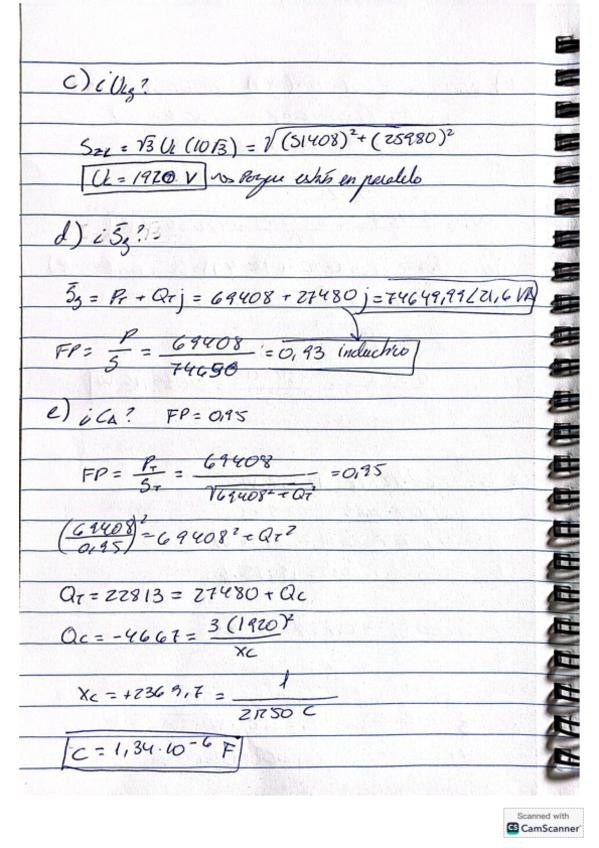 c) ¿ULg?
SZL = √3 UL (10√3) = √(51408)²+(25980)²
UL = 1920 V ~> Porque están en paralelo
d) ¿S̄g?
S̄g = PT + QT j = 69408 + 27480 j = 74649,99∠21,6 VA
FP = P/S = 69408/74650 = 0,93 inductivo
e) ¿CΔ? FP = 0,95
FP = PT/ST = 69408/√69408²+QT² = 0,95
(69408/0,95)² = 69408² + QT²
QT = 22813 = 27480 + QC
QC = -4667 = 3(1920)²/XC
XC = +2369,7 = 1/2π50 C
C = 1,34·10⁻⁶ F
Scanned with
CS CamScanner